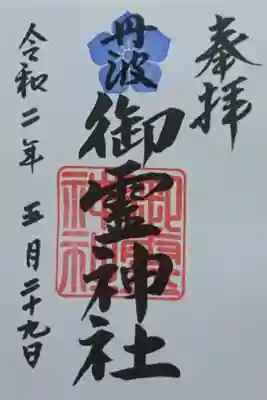 奉拝
丹波
御霊神社
御霊
神社
令和二年 五月二十九日